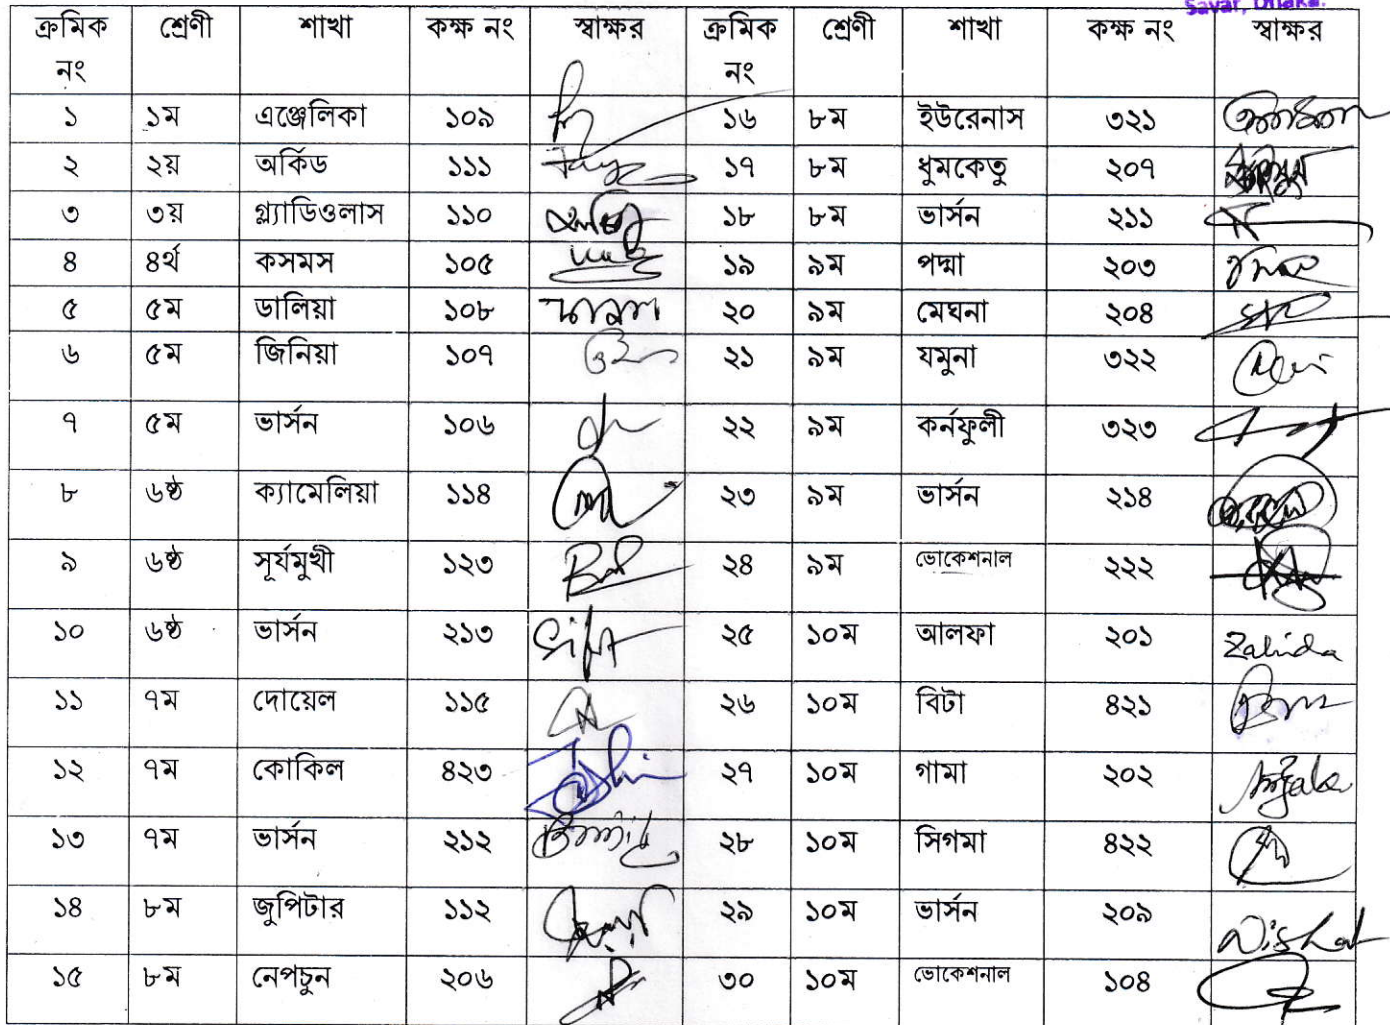 Savar, Dhaka.
ক্রমিক নং শ্রেণী শাখা কক্ষ নং স্বাক্ষর ক্রমিক নং শ্রেণী শাখা কক্ষ নং স্বাক্ষর
১ ১ম এঞ্জেলিকা ১০৯ ১৬ ৮ম ইউরেনাস ৩২১
২ ২য় অর্কিড ১১১ ১৭ ৮ম ধুমকেতু ২০৭
৩ ৩য় গ্ল্যাডিওলাস ১১০ ১৮ ৮ম ভার্সন ২১১
৪ ৪র্থ কসমস ১০৫ ১৯ ৯ম পদ্মা ২০৩
৫ ৫ম ডালিয়া ১০৮ ২০ ৯ম মেঘনা ২০৪
৬ ৫ম জিনিয়া ১০৭ ২১ ৯ম যমুনা ৩২২
৭ ৫ম ভার্সন ১০৬ ২২ ৯ম কর্নফুলী ৩২৩
৮ ৬ষ্ঠ ক্যামেলিয়া ১১৪ ২৩ ৯ম ভার্সন ২১৪
৯ ৬ষ্ঠ সূর্যমুখী ১২৩ ২৪ ৯ম ভোকেশনাল ২২২
১০ ৬ষ্ঠ ভার্সন ২১৩ ২৫ ১০ম আলফা ২০১ Zahida
১১ ৭ম দোয়েল ১১৫ ২৬ ১০ম বিটা ৪২১
১২ ৭ম কোকিল ৪২৩ ২৭ ১০ম গামা ২০২
১৩ ৭ম ভার্সন ২১২ ২৮ ১০ম সিগমা ৪২২
১৪ ৮ম জুপিটার ১১২ ২৯ ১০ম ভার্সন ২০৯ Nishat
১৫ ৮ম নেপচুন ২০৬ ৩০ ১০ম ভোকেশনাল ১০৪